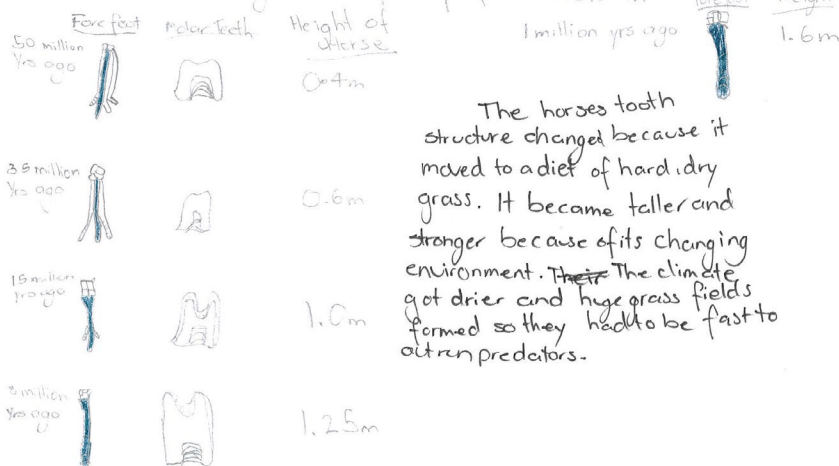 Fore foot
Molar Teeth
Height of
Horse
50 million
Yrs ago
0.4m
35 million
Yrs ago
0.6m
15 million
yrs ago
1.0m
million
Yrs ago
1.25m
1 million yrs ago
1.6m
The horses tooth
structure changed because it
moved to a diet of hard, dry
grass. It became taller and
stronger because of its changing
environment. Their The climate
got drier and huge grass fields
formed so they had to be fast to
outrun predators.